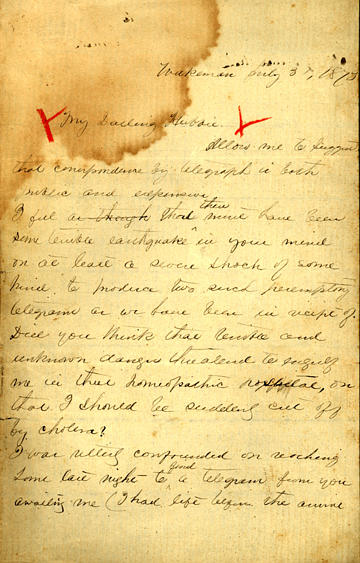 Wakeman July 3, 1873
My Darling Hubbie.
Allow me to suggest
that correspondence by telegraph is both
public and expensive
I feel as though that there must have been
some terrible earthquake in your mind
or at least a severe shock of some
kind to produce two such peremptory
telegrams as we have been in receipt of.
Did you think that terrible and
unknown dangers threatened to engulf
me in that homeopathic hospital, or
that I should be suddenly cut off
by cholera?
I was utterly confounded on reaching
home last night to find a telegram from you
awaiting me (I had left before the